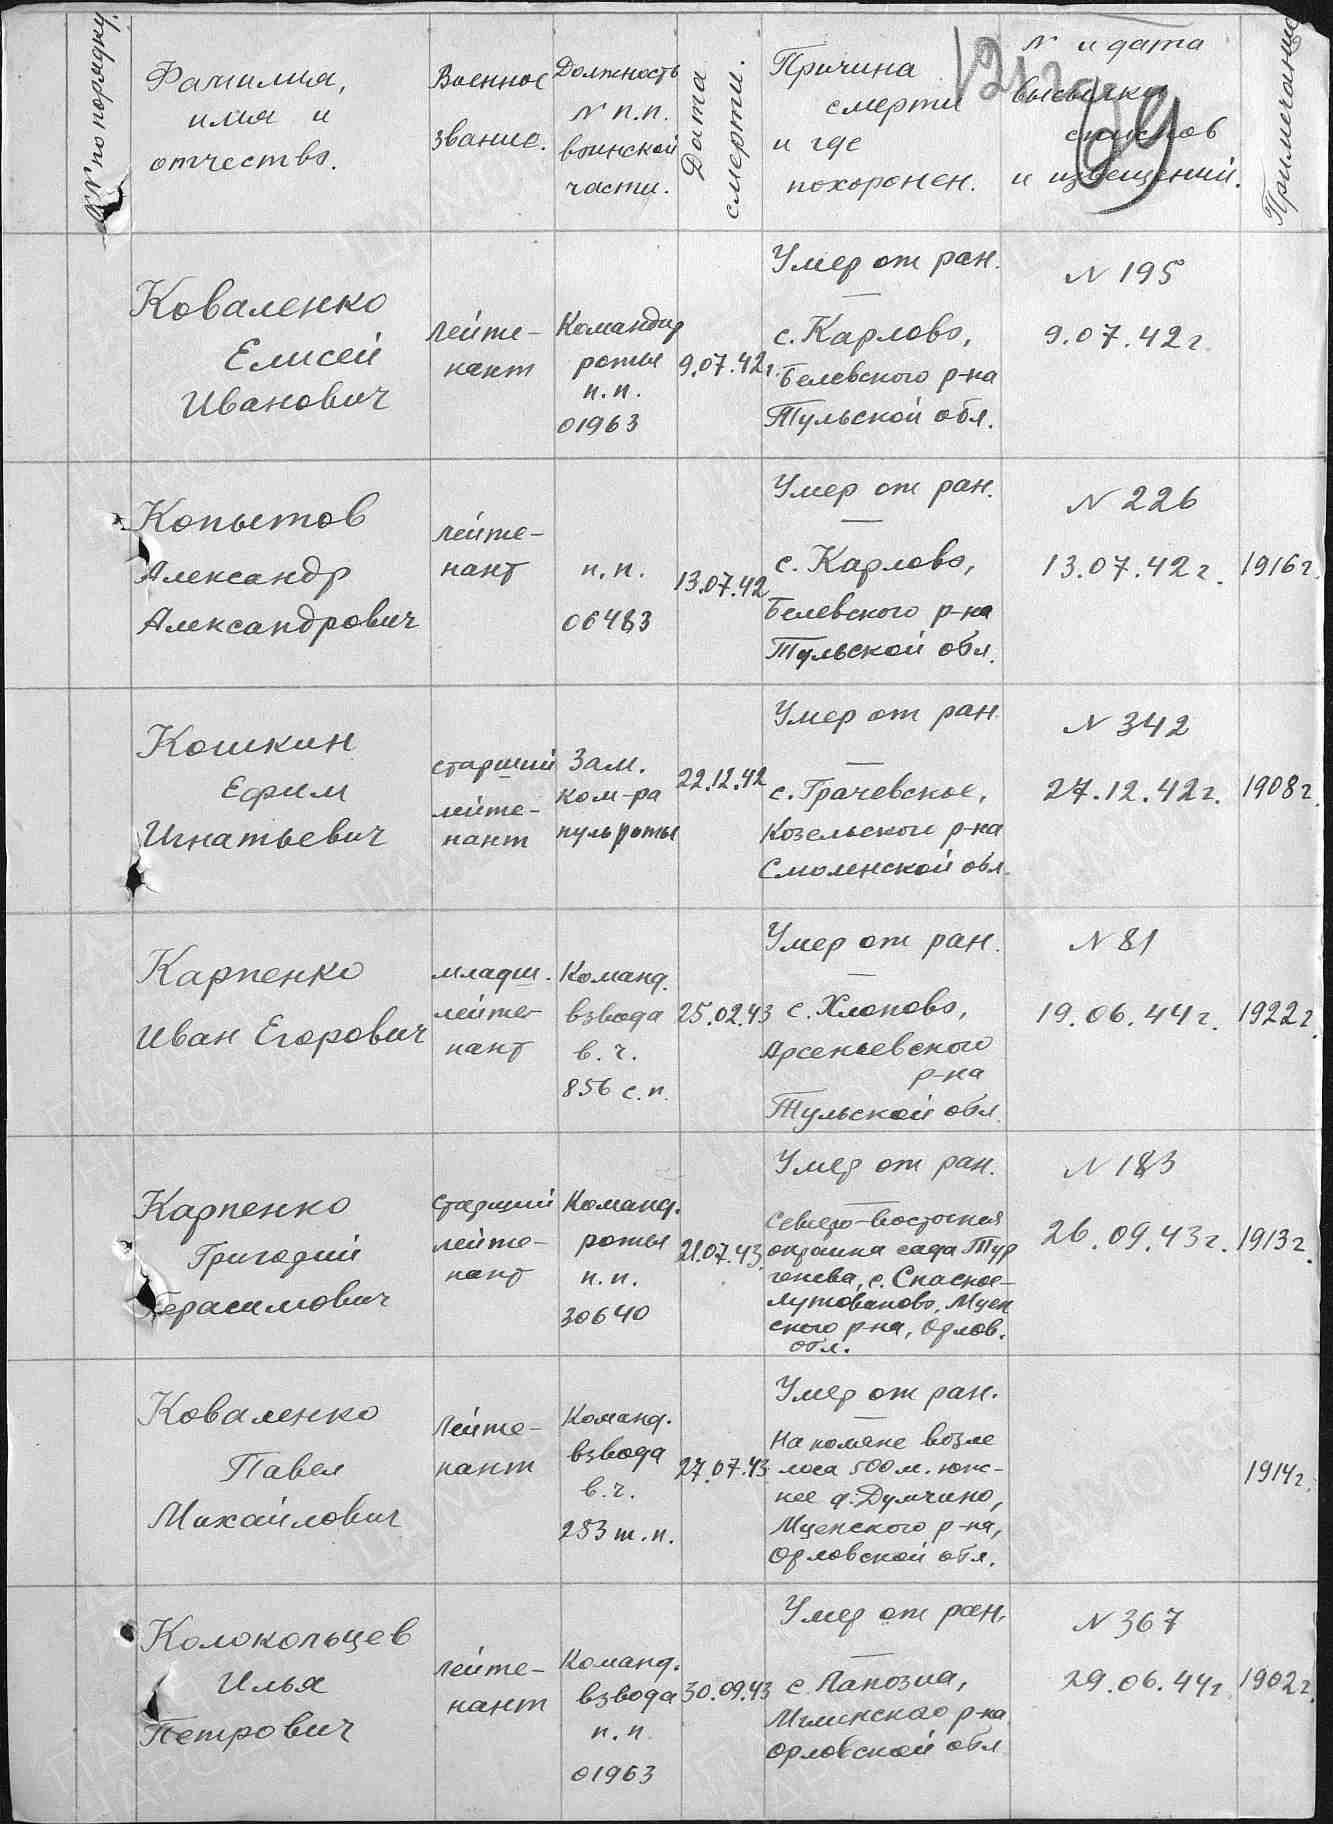 №№ по порядку.
Фамилия,
имя и
отчество.
Военное
звание.
Должность
N п.п.
воинской
части.
Дата
смерти.
Причина
смерти
и где
похоронен.
N и дата
высылки
списков
и извещений.
Примечание
Коваленко
Елисей
Иванович
Лейте-
нант
Командир
роты
п.п.
01963
9.07.42г.
Умер от ран.
с. Карлово,
Белевского р-на
Тульской обл.
N 195
9.07.42г.
Копытов
Александр
Александрович
лейте-
нант
п.п.
06483
13.07.42
Умер от ран.
с. Карлово,
Белевского р-на
Тульской обл.
N 226
13.07.42г.
1916г.
Кошкин
Ефим
Игнатьевич
старший
лейте-
нант
Зам.
ком-ра
пульроты
22.12.42
Умер от ран.
с. Грачевское,
Козельского р-на
Смоленской обл.
N 342
27.12.42г.
1908г.
Карпенко
Иван Егорович
младш.
лейте-
нант
Команд.
взвода
в.ч.
856 с.п.
25.02.43
Умер от ран.
с. Хлопово,
Арсеньевского
р-на
Тульской обл.
N 81
19.06.44г.
1922г.
Карпенко
Григорий
Герасимович
старший
лейте-
нант
Команд.
роты
п.п.
30640
21.07.43.
Умер от ран.
Северо-восточная
окраина сада Тур
генева, с. Спаское-
Лутованово, Мцен
ского р-на, Орлов.
обл.
N 183
26.09.43г.
1913г.
Коваленко
Павел
Михайлович
Лейте-
нант
Команд.
взвода
в.ч.
283 т.п.
27.07.43
Умер от ран.
На поляне возле
леса 500 м. юж-
нее д. Думчино,
Мценского р-на,
Орловской обл.
1914г.
Колокольцев
Илья
Петрович
Лейте-
нант
Команд.
взвода
п.п.
01963
30.09.43
Умер от ран.
с. Лапозна,
Мглинского р-на
Орловской обл
N 367
29.06.44г.
1902г.